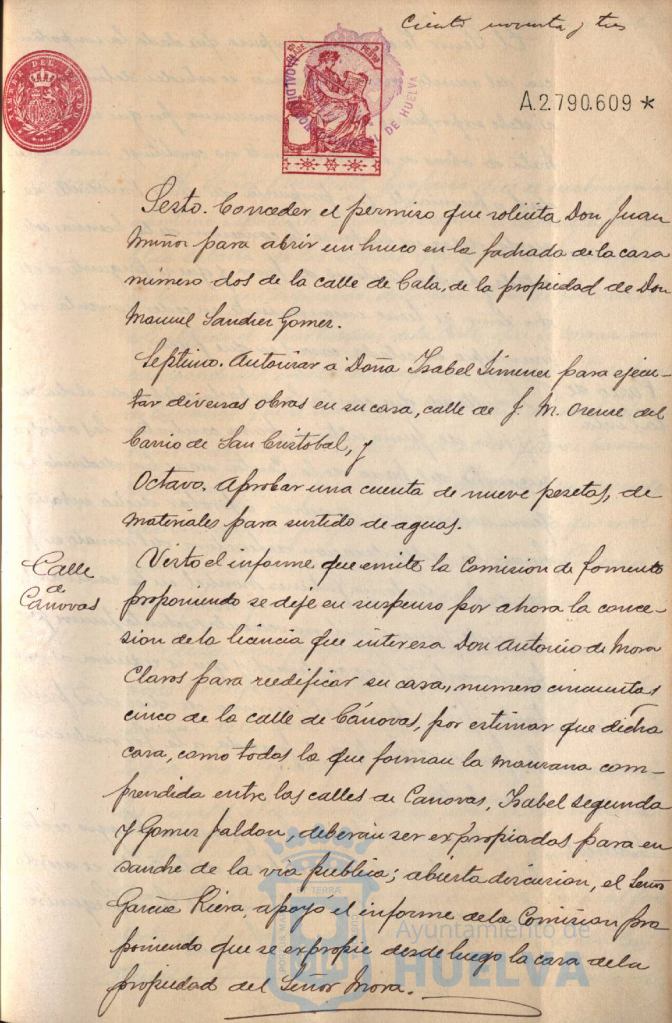 Ciento noventa y tres
TIMBRE DEL ESTADO
DE HUELVA
A.2.790.609*
Sesto. Conceder el permiso que solicita Don Juan
Muñoz para abrir un hueco en la fachada de la casa
número dos de la calle de Cala, de la propiedad de Don
Manuel Sandier Gomez.
Septimo. Autorizar a Doña Isabel Jimenez para ejecu-
tar diversas obras en su casa, calle de J. M. Orense del
barrio de San Cristobal, y
Octavo. Aprobar una cuenta de nueve pesetas, de
materiales para surtido de aguas.
Calle
de
Cánovas
Visto el informe que emite la Comision de fomento
proponiendo se deje en suspenso por ahora la conce-
sion de la licencia que interesa Don Antonio de Mora
Claros para reedificar su casa, numero cincuenta y
cinco de la calle de Cánovas, por estimar que dicha
casa, como todas la que forman la manzana com-
prendida entre las calles de Canovas, Isabel segunda
y Gomez Jaldon, deberán ser expropiadas para en
sanche de la via publica; abierta discusion, el Señor
Garcia Riera, apoyó el informe de la Comision pro
poniendo que se expropie desde luego la casa de la
propiedad del Señor Mora.
Ayuntamiento de
HUELVA